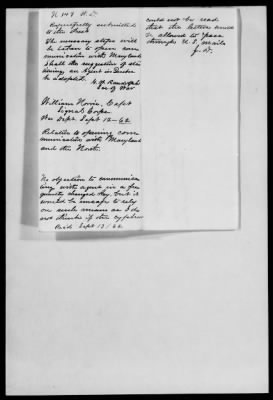 N 147 W.D.
Respectfully submitted
to the Presdt
The necessary steps will
be taken to open com
munication with Maryland
Shall the suggestion of sta
tioning an Agent in London
be adopted.
G. W. Randolph
Sec of War
William Norris, Capt
Signal Corps
War Dept. Sept 12 - 62
Relative to opening com
munication with Maryland
and the North.
No objection to communica
ting with agent in a fre
quently changed key, but it
would be unsafe to rely
on such means as I do
not think if the cypher
Recd Sept 13/62
could not be read
that the letters would
be allowed to pass
through U S mails
J. D.